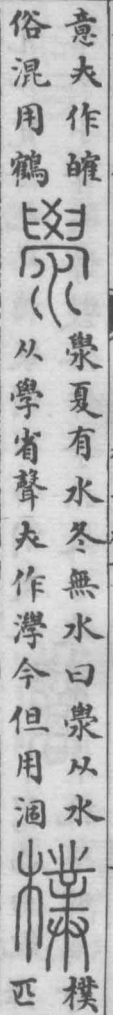 意亦作㿥
俗混用鶴
澩
澩夏有水冬無水曰澩从水
从學省聲亦作㶅今但用涸
樸
樸
匹